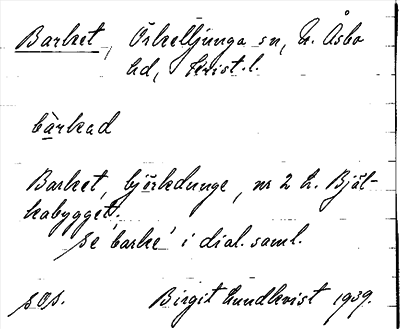 Barket, Örkelljunga sn, N. Åsbo
hd, Krist.l.
bàrkad
Barket, björkdunge, nr 2 L. Bjäl-
kabygget.
se 'barke' i dial. saml.
sOs. Birgit Lundkvist 1939.